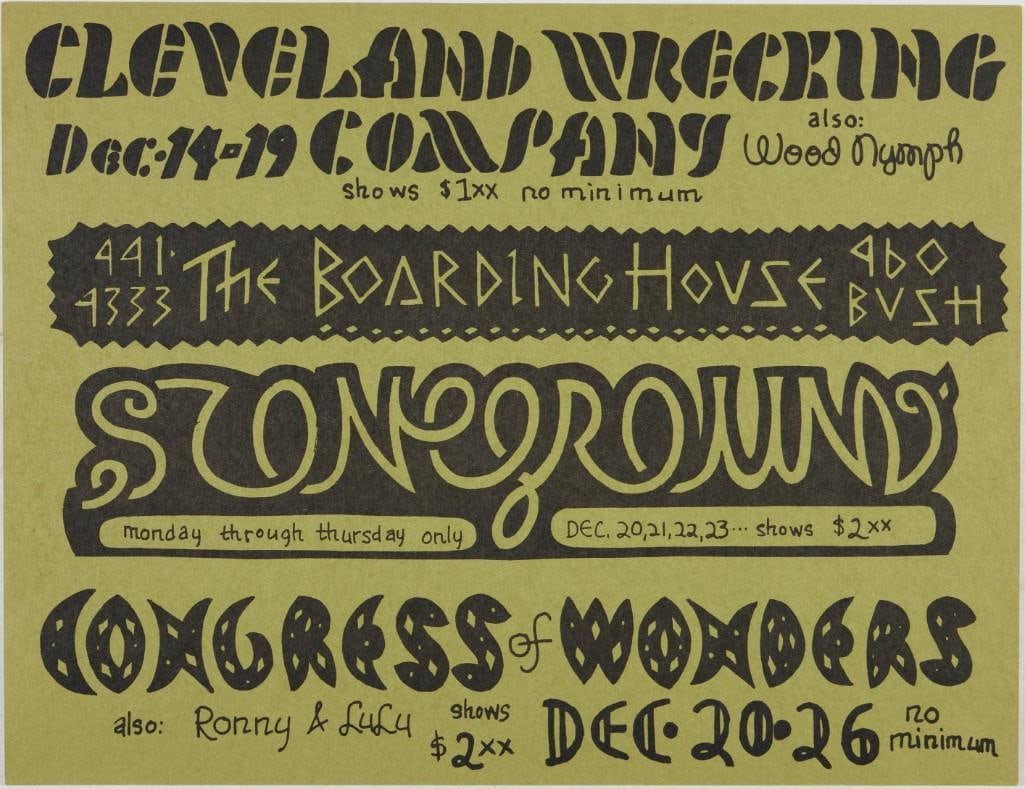 CLEVELAND WRECKING
Dec. 14-19 COMPANY also: Wood Nymph
shows $1xx no minimum
441-4333 The BOARDING HOUSE 960 BUSH
STONEGROUND
monday through thursday only DEC. 20,21,22,23... shows $2xx
CONGRESS of WONDERS
also: Ronny & LuLu shows $2xx DEC. 20-26 no minimum